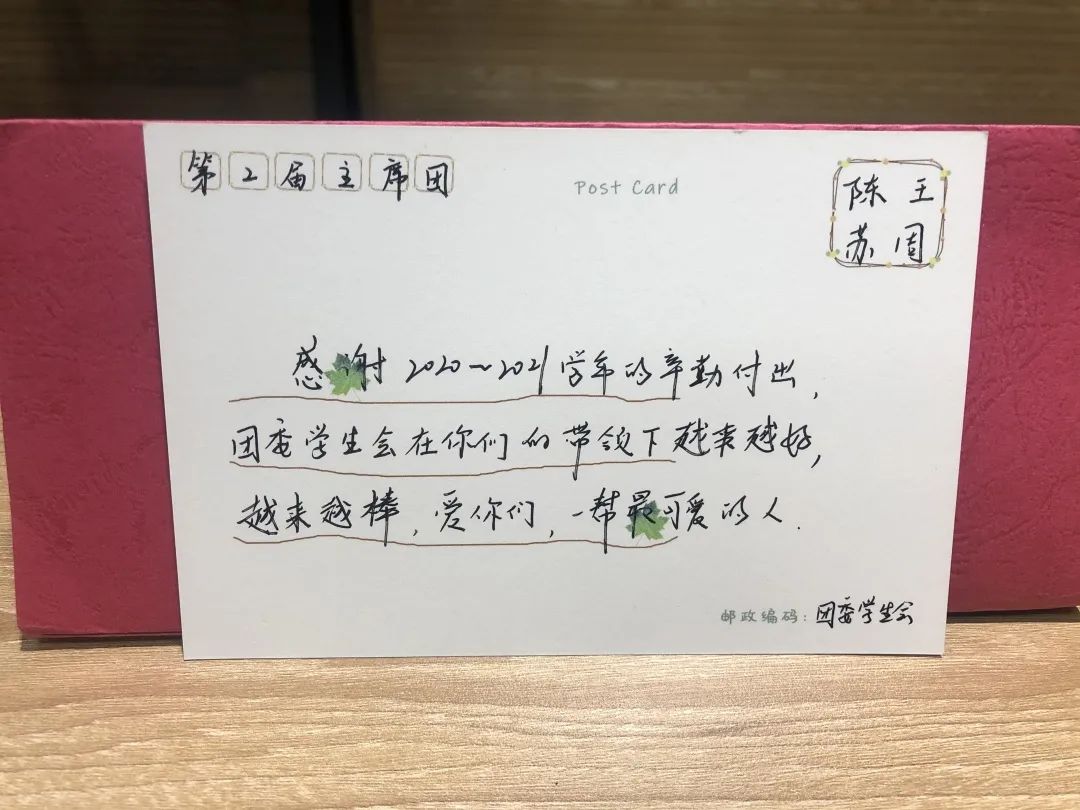 第2届主席团
Post Card
陈王
苏周
感谢2020~2021学年的辛勤付出，
团委学生会在你们的带领下越来越好，
越来越棒，爱你们，一帮最可爱的人.
邮政编码：团委学生会